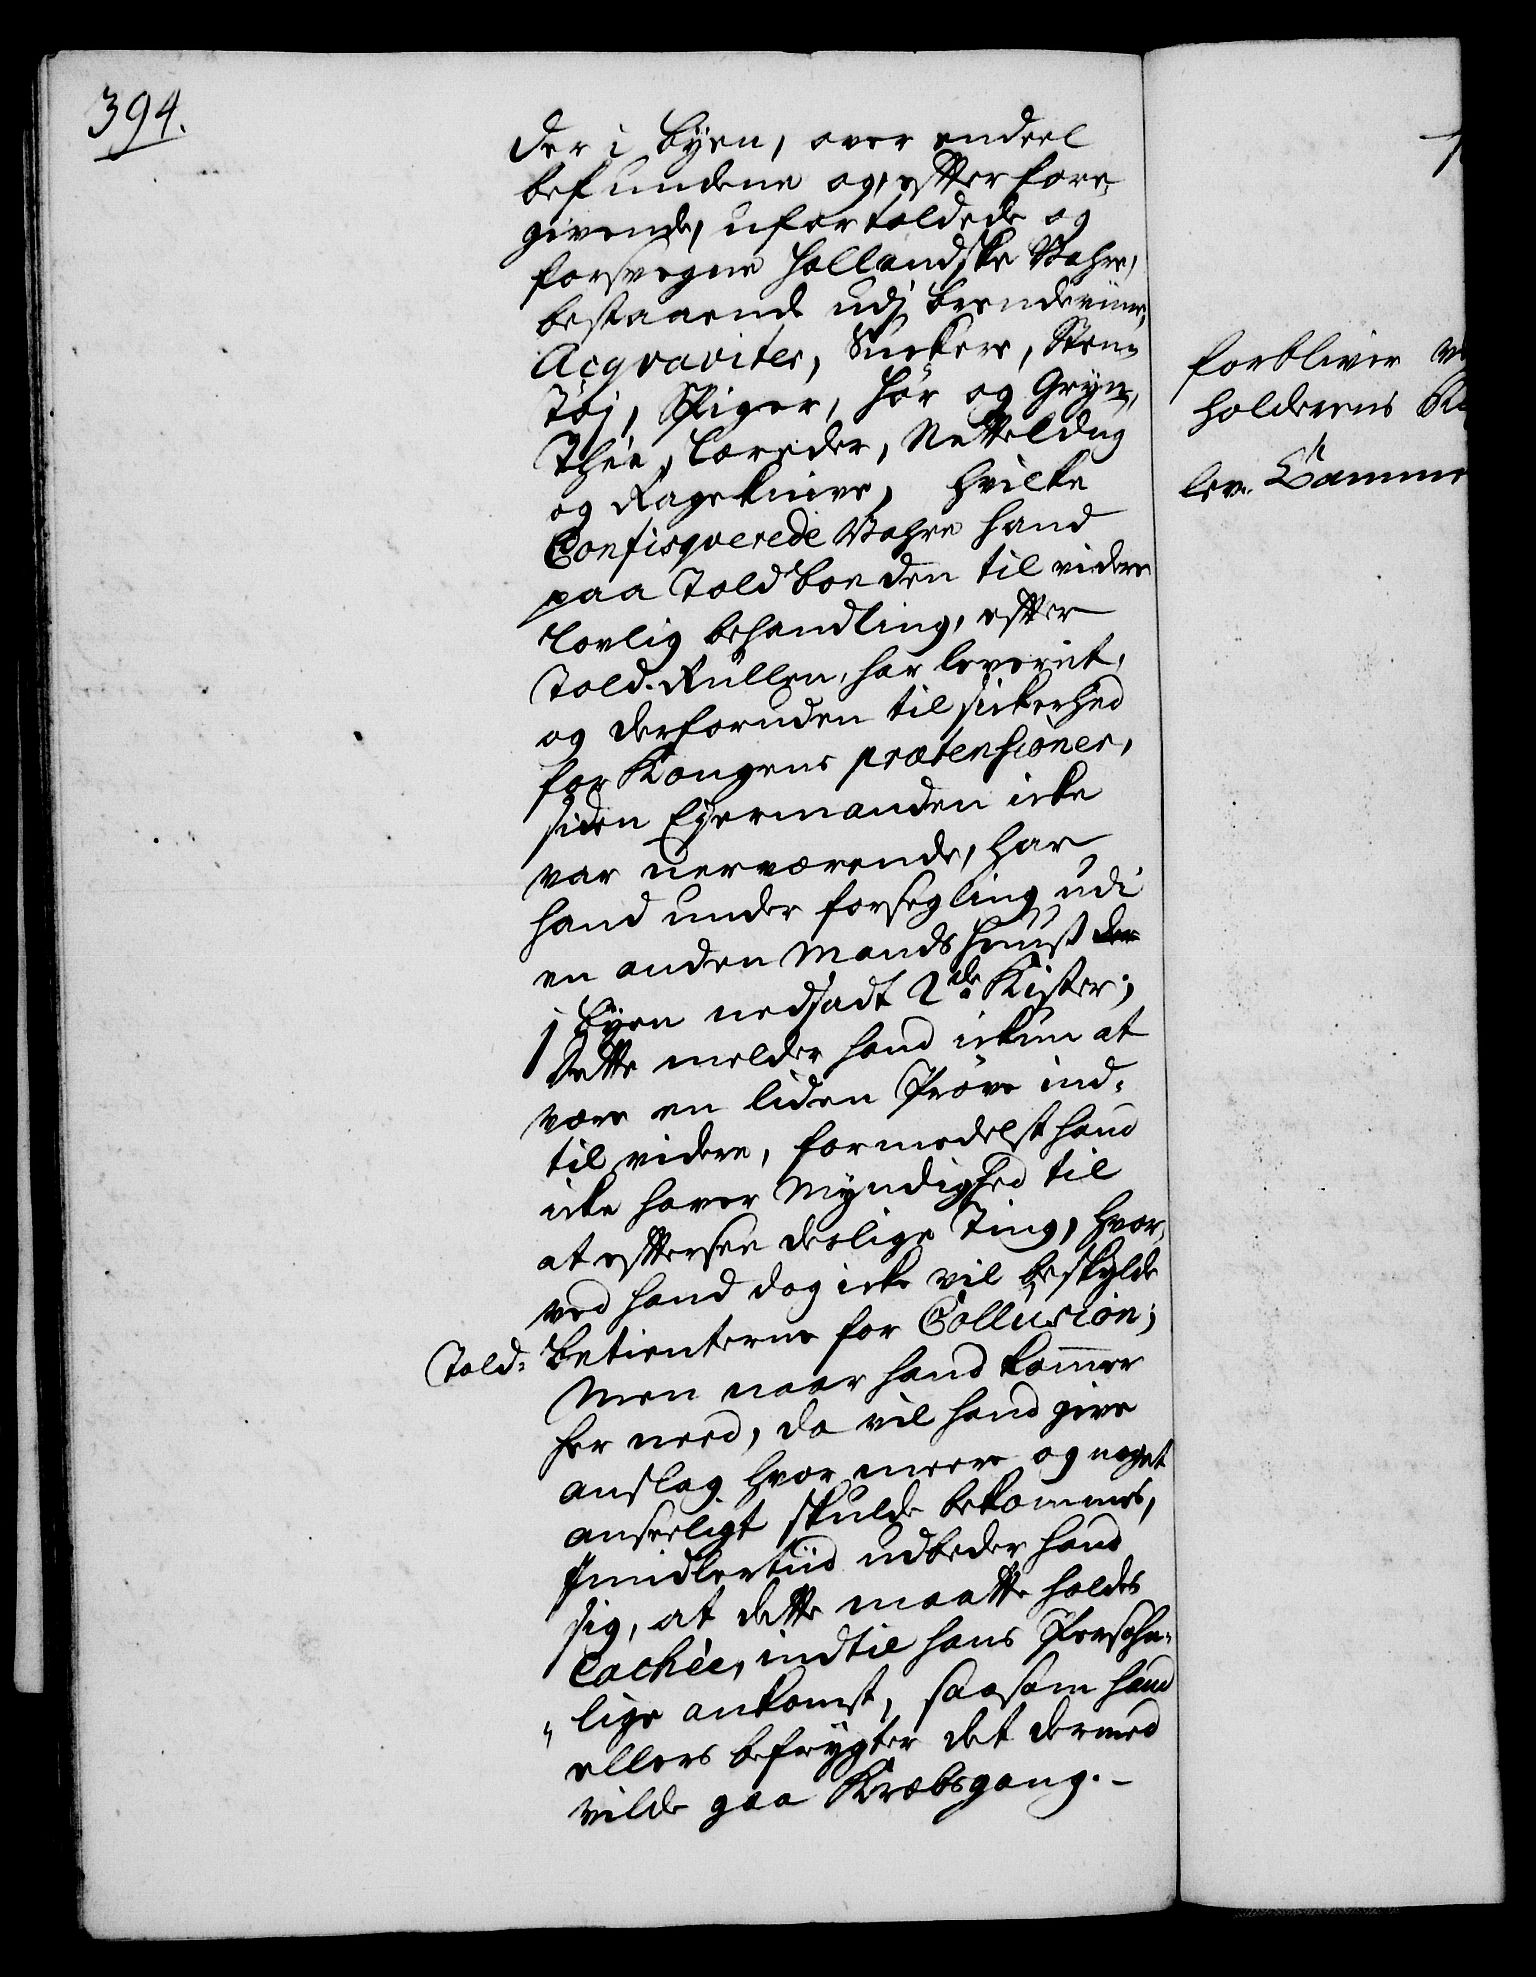 394.
der i Byen, over endeel
befundene og, efter fore,
givende, ufortoldede og
forsvegne Hollandske Vahre,
bestaaende udj brendeviine,
Acqvaviter, Suckere, Steen=
tøj, Spiger, Hør og Gryn,
Thée, Lereder, Netteldug
og Rageknive, hvilke
Confisqverede Vahre hand
paa Toldboeden til videre
lovlig behandling, efter
Told-Rullen, har leveret,
og derforuden til sickerhed
for Kongens prætensioner,
siden Ejermanden icke
var nerværende, har
hand under forsegling udi
en anden Mands Huus
j Byen nedsadt 2de Kister;
Dette melder hand ickun at
være en liden Prøve ind=
til videre, formedelst hand
icke haver Myndighed til
at eftersee deslige Ting, hvor,
ved hand dog icke vil beskylde
Told= betienterne for Collusion;
Men naar hand kommer
her need, da vil hand give
anslag hvor meere og noget
anseeligt skulde bekommes,
Jmidlertiid udbeder hand
sig, at dette maatte holdes
Cachée, indtil hans Persohn=
"lige ankomst, saasom hand
ellers befrygter det dermed
vilde gaa Krebsgang.-
forbliver
holderens
lev.